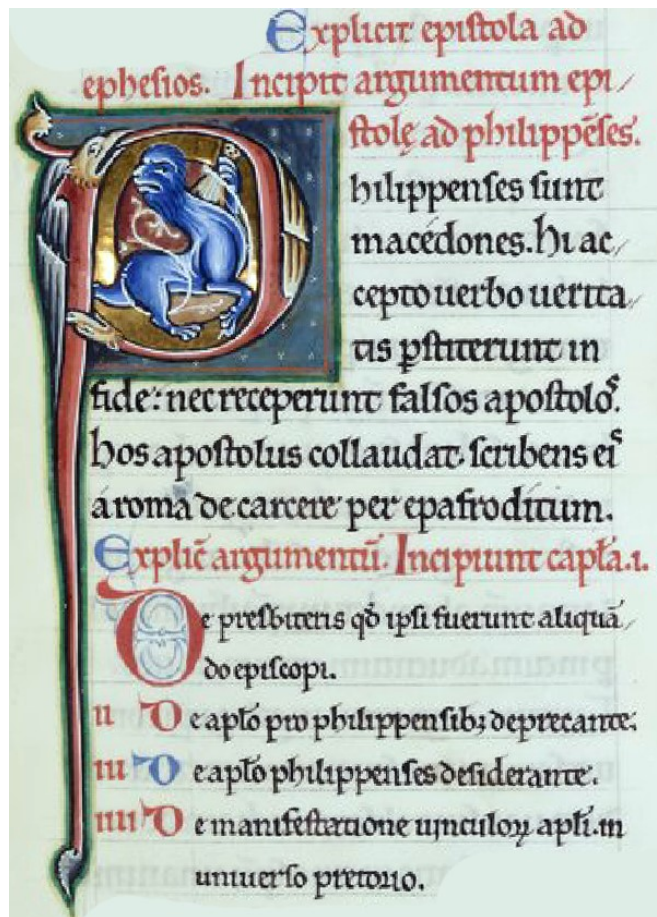 Explicit epistola ad
ephesios. Incipit argumentum epi/
stolę ad philippēses.
Philippenses sunt
macedones. hi ac/
cepto uerbo uerita/
tis pstiterunt in
fide: nec receperunt falsos apostolos.
hos apostolus collaudat. scribens eis
a roma de carcere per epafroditum.
Explic̄ argumentū. Incipiunt capl̄a .i.
De presbiteris qđ ipsi fuerunt aliquā/
do episcopi.
ii De apl̄o pro philippensibꝫ deprecante.
iii De apl̄o philippenses desiderante.
iiii De manifestatione uinculoꝝ apl̄i. in
uniuerso pretorio.